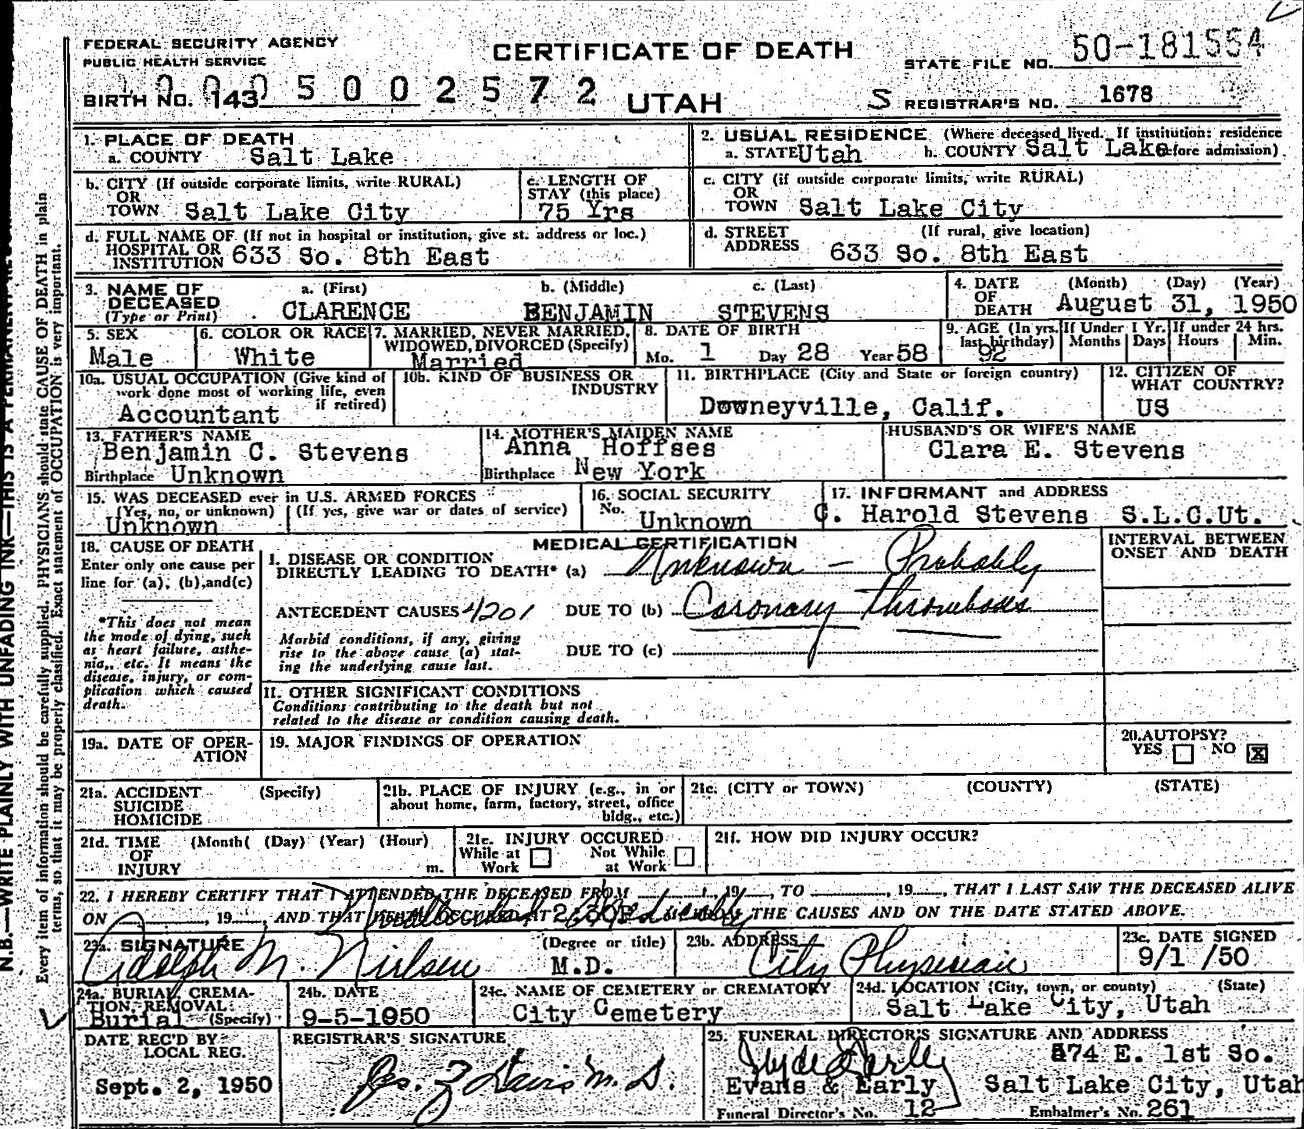 FEDERAL SECURITY AGENCY
PUBLIC HEALTH SERVICE
CERTIFICATE OF DEATH
STATE FILE NO. 50-181554
BIRTH NO. 143 5002572
UTAH
S REGISTRAR'S NO. 1678
1. PLACE OF DEATH
a. COUNTY Salt Lake
2. USUAL RESIDENCE (Where deceased lived. If institution: residence
a. STATE Utah b. COUNTY Salt Lake before admission)
b. CITY (If outside corporate limits, write RURAL)
OR
TOWN Salt Lake City
c. LENGTH OF
STAY (this place)
75 Yrs
c. CITY (if outside corporate limits, write RURAL)
OR
TOWN Salt Lake City
d. FULL NAME OF (If not in hospital or institution, give st. address or loc.)
HOSPITAL OR
INSTITUTION 633 So. 8th East
d. STREET (If rural, give location)
ADDRESS 633 So. 8th East
3. NAME OF DECEASED
(Type or Print)
a. (First) b. (Middle) c. (Last)
CLARENCE BENJAMIN STEVENS
4. DATE OF DEATH (Month) (Day) (Year)
August 31, 1950
5. SEX
Male
6. COLOR OR RACE
White
7. MARRIED, NEVER MARRIED,
WIDOWED, DIVORCED (Specify)
Married
8. DATE OF BIRTH
Mo. 1 Day 28 Year 58
9. AGE (In yrs. last birthday)
92
If Under 1 Yr.
Months Days
If under 24 hrs.
Hours Min.
10a. USUAL OCCUPATION (Give kind of
work done most of working life, even
if retired)
Accountant
10b. KIND OF BUSINESS OR
INDUSTRY
11. BIRTHPLACE (City and State or foreign country)
Downeyville, Calif.
12. CITIZEN OF
WHAT COUNTRY?
US
13. FATHER'S NAME
Benjamin C. Stevens
Birthplace Unknown
14. MOTHER'S MAIDEN NAME
Anna Hoffses
Birthplace New York
HUSBAND'S OR WIFE'S NAME
Clara E. Stevens
15. WAS DECEASED ever in U.S. ARMED FORCES
(Yes, no, or unknown) (If yes, give war or dates of service)
Unknown
16. SOCIAL SECURITY
No. Unknown
17. INFORMANT and ADDRESS
C. Harold Stevens S.L.C.Ut.
18. CAUSE OF DEATH
Enter only one cause per
line for (a), (b), and (c)
*This does not mean
the mode of dying, such
as heart failure, asthe-
nia, etc. It means the
disease, injury, or com-
plication which caused
death.
MEDICAL CERTIFICATION
I. DISEASE OR CONDITION
DIRECTLY LEADING TO DEATH* (a) Unknown - Probably
ANTECEDENT CAUSES 4201 DUE TO (b) Coronary Thrombosis
Morbid conditions, if any, giving
rise to the above cause (a) stat-
ing the underlying cause last.
DUE TO (c)
INTERVAL BETWEEN
ONSET AND DEATH
II. OTHER SIGNIFICANT CONDITIONS
Conditions contributing to the death but not
related to the disease or condition causing death.
19a. DATE OF OPER-
ATION
19. MAJOR FINDINGS OF OPERATION
20. AUTOPSY?
YES NO X
21a. ACCIDENT (Specify)
SUICIDE
HOMICIDE
21b. PLACE OF INJURY (e.g., in or
about home, farm, factory, street, office
bldg., etc.)
21c. (CITY or TOWN) (COUNTY) (STATE)
21d. TIME (Month( (Day) (Year) (Hour)
OF
INJURY m.
21e. INJURY OCCURED
While at Work Not While at Work
21f. HOW DID INJURY OCCUR?
22. I HEREBY CERTIFY THAT I ATTENDED THE DECEASED FROM , 19 , TO , 19 , THAT I LAST SAW THE DECEASED ALIVE
ON , 19 , AND THAT DEATH OCCURRED AT 2:30P THE CAUSES AND ON THE DATE STATED ABOVE.
23a. SIGNATURE (Degree or title)
Adolph M. Nielsen M.D.
23b. ADDRESS
City Physician
23c. DATE SIGNED
9/1/50
24a. BURIAL, CREMA-
TION, REMOVAL:
Burial (Specify)
24b. DATE
9-5-1950
24c. NAME OF CEMETERY or CREMATORY
City Cemetery
24d. LOCATION (City, town, or county) (State)
Salt Lake City, Utah
DATE REC'D BY
LOCAL REG.
Sept. 2, 1950
REGISTRAR'S SIGNATURE
Jas. Z Davis M.D.
25. FUNERAL DIRECTOR'S SIGNATURE AND ADDRESS
574 E. 1st So.
Evans & Early Salt Lake City, Utah
Funeral Director's No. 12 Embalmer's No. 261
N.B.—WRITE PLAINLY WITH UNFADING INK—THIS IS A PERMANENT
Every item of information should be carefully supplied. PHYSICIANS should state CAUSE OF DEATH in plain
terms, so that it may be properly classified. Exact statement of OCCUPATION is very important.